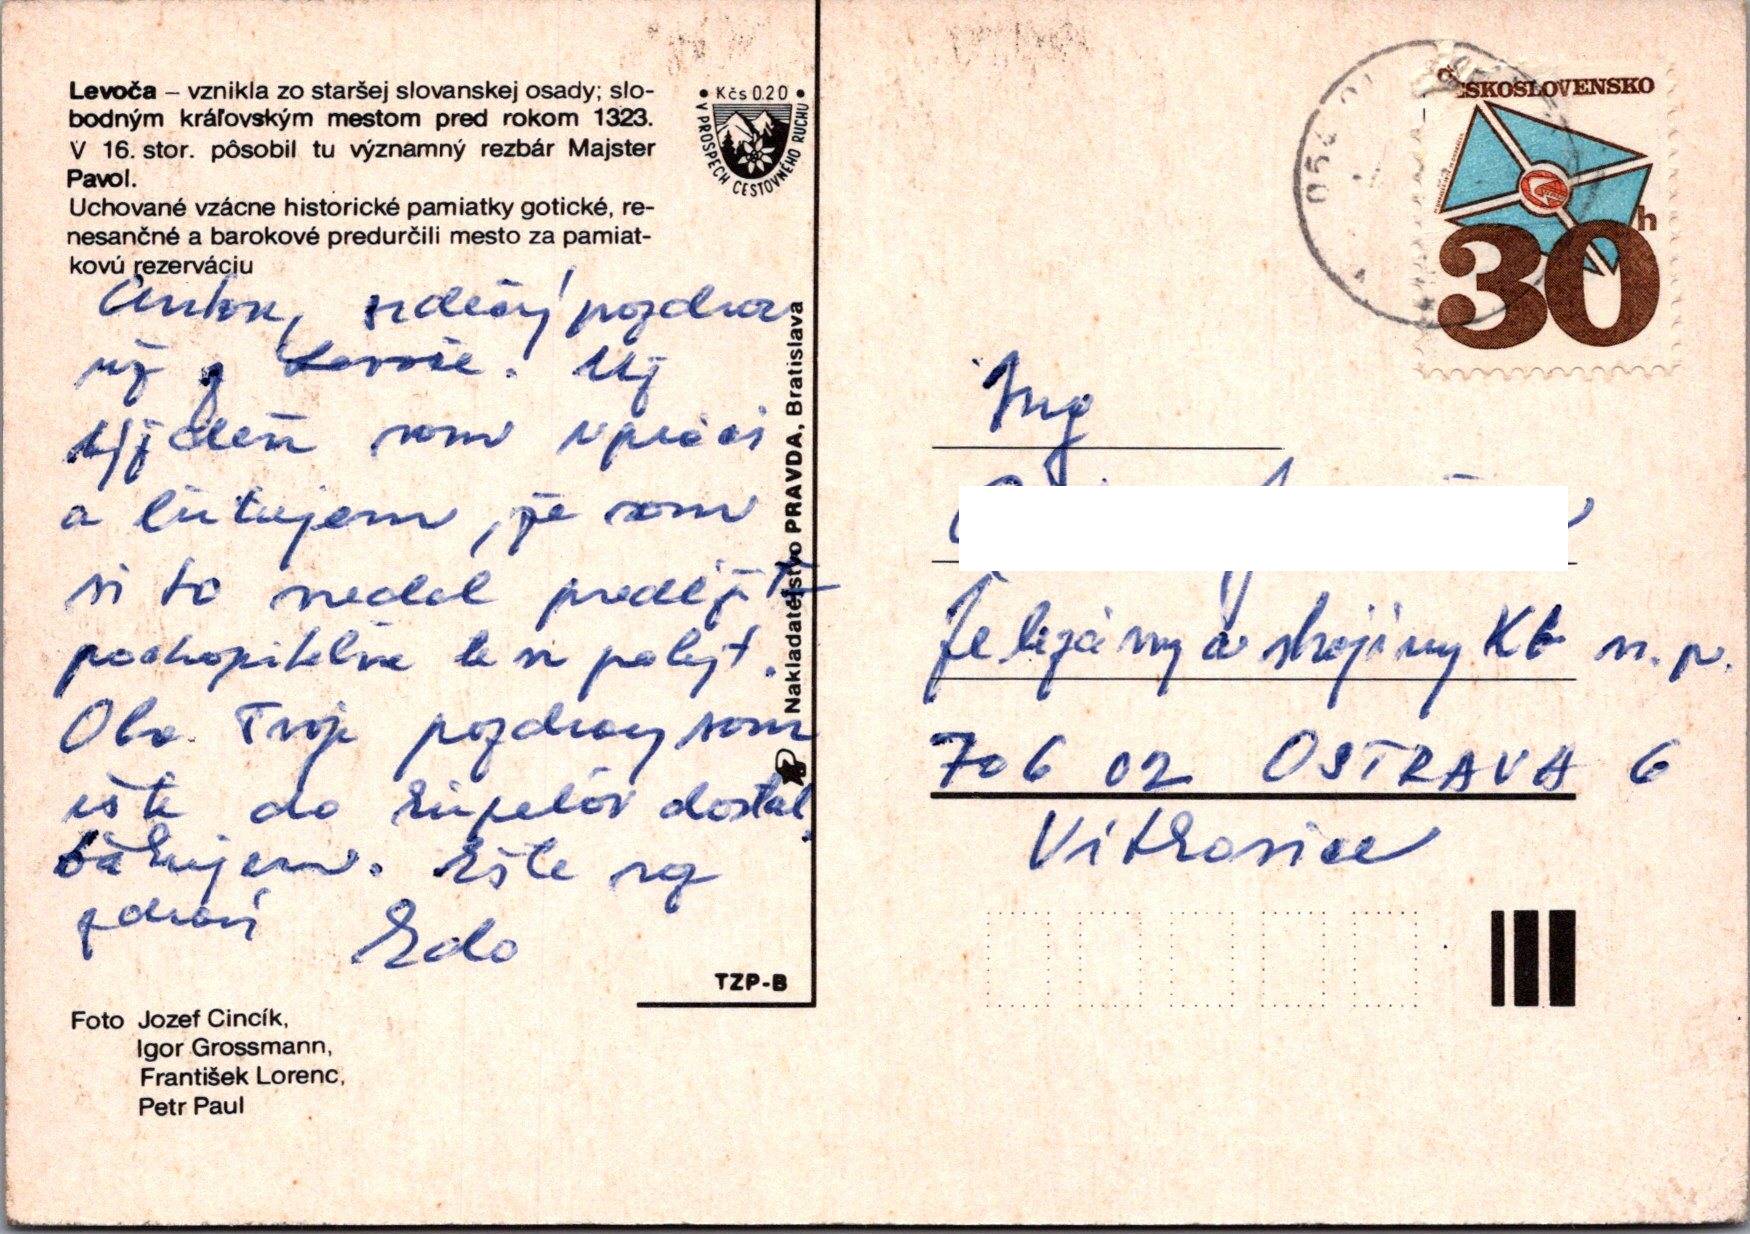 Levoča – vznikla zo staršej slovanskej osady; slo-
bodným kráľovským mestom pred rokom 1323.
V 16. stor. pôsobil tu významný rezbár Majster
Pavol.
Uchované vzácne historické pamiatky gotické, re-
nesančné a barokové predurčili mesto za pamiat-
kovú rezerváciu
• Kčs 0.20 •
V PROSPECH CESTOVNÉHO RUCHU
srdečný pozdrav
už z Levoče. Už
týždeň som v práci
a ľutujem, že som
si to nedal predĺžiť
pochopiteľne ten pobyt.
Oba Tvoje pozdravy som
ešte do kúpeľov dostal,
ďakujem. Ešte raz
zdraví Edo
Nakladateľstvo PRAVDA, Bratislava
TZP-B
Foto Jozef Cincík,
Igor Grossmann,
František Lorenc,
Petr Paul
ČESKOSLOVENSKO
30h
Ing
Železárny a strojírny KG n.p.
706 02 OSTRAVA 6
Vítkovice